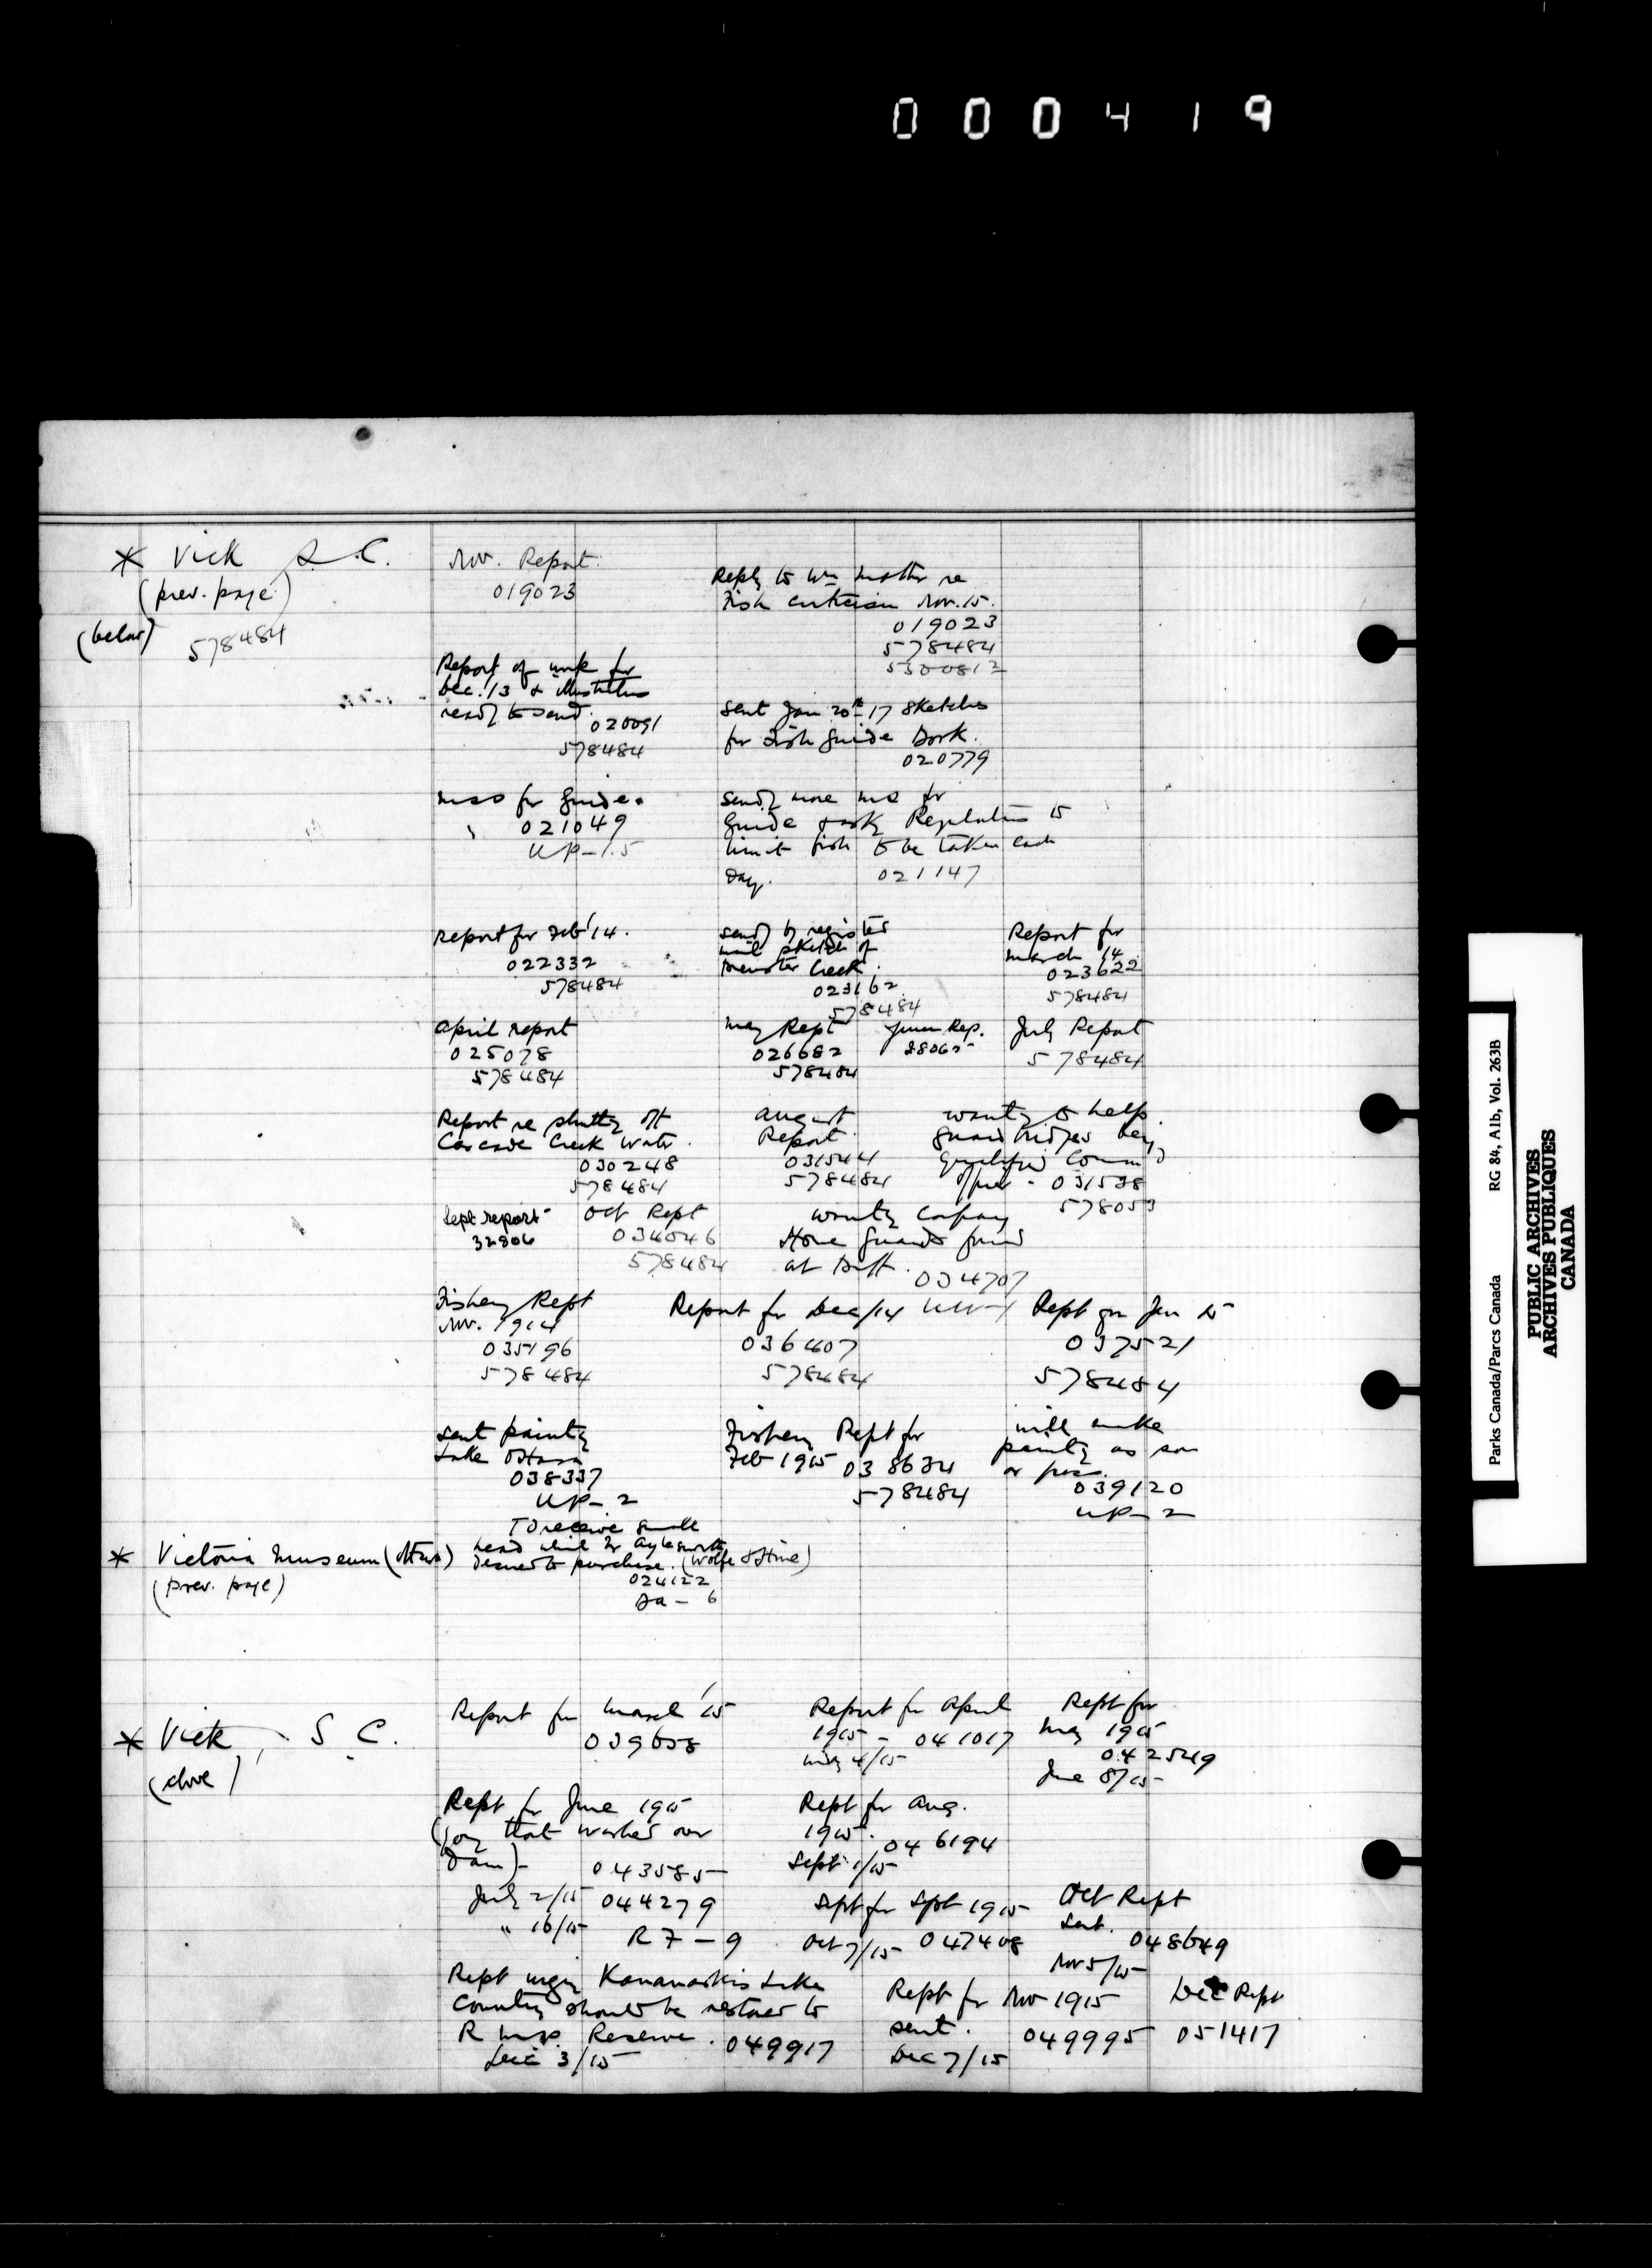 000419
* Vick S.C.
(prev. page)
(below) 578484
Nov. Report.
019023
Reply to Wm Mather re
Fish criticism Nov. 15.
019023
578484
5300812
Report of work for
Dec. 13 &
ready to send.
020091
578484
Sent Jan 20th 17 sketches
for Fish Guide Book.
020779
mss for Guide.
021049
UP-1.5
Sendg more mss for
Guide & askg Regulation to
limit fish to be taken each
Day. 021147
report for Feb '14.
022332
578484
sendg by register
mail sketch of
Creek.
023162
578484
Report for
March 14
023622
578484
April report
025078
578484
May Rept
026682
578484
June Rep.
28065
July Report
578484
Report re shuttg off
Cascade Creek Water.
030248
578484
August
Report
031544
578484
wantg to help
guard bridges beg
Qualified Comm'd
Officer - 031538
578053
Sept report
32806
Oct Rept
034046
578484
wantg Company
Home Guards formed
at Banff. 034707
UW-1
Fishery Rept
Nov. 1914
035196
578484
Report for Dec/14
036407
578484
Rept for Jan 15
037521
578484
sent paintg
Lake O'Hara
038337
UP-2
Fishery Rept for
Feb 1915 038634
578484
will make
paintg as soon
as poss.
039120
UP-2
* Victoria Museum (Ottawa)
(prev. page)
To receive small
head which Mr Aylesworth
desired to purchase. (Wolfe & Hine)
024122
Da-6
* Vick, S.C.
(above)
Report for March '15
039658
Report for April
1915 - 041017
May 4/15
Rept for
May 1915
042549
June 8/15
Rept for June 1915
(log that washed over
Dam) - 043585
July 2/15 044279
" 16/15 R7-9
Rept for Aug.
1915. 046194
Sept 1/15
Rept for Sept 1915
Oct 7/15 047408
Oct Rept
sent.
048649
Nov 5/15
Rept urgg Kananaskis Lake
Country should be restored to
R Mtn Reserve. 049917
Dec 3/15
Rept for Nov 1915
sent. 049995
Dec 7/15
Dec Rept
051417
Parks Canada/Parcs Canada RG 84, A1b, Vol. 263B
PUBLIC ARCHIVES
ARCHIVES PUBLIQUES
CANADA